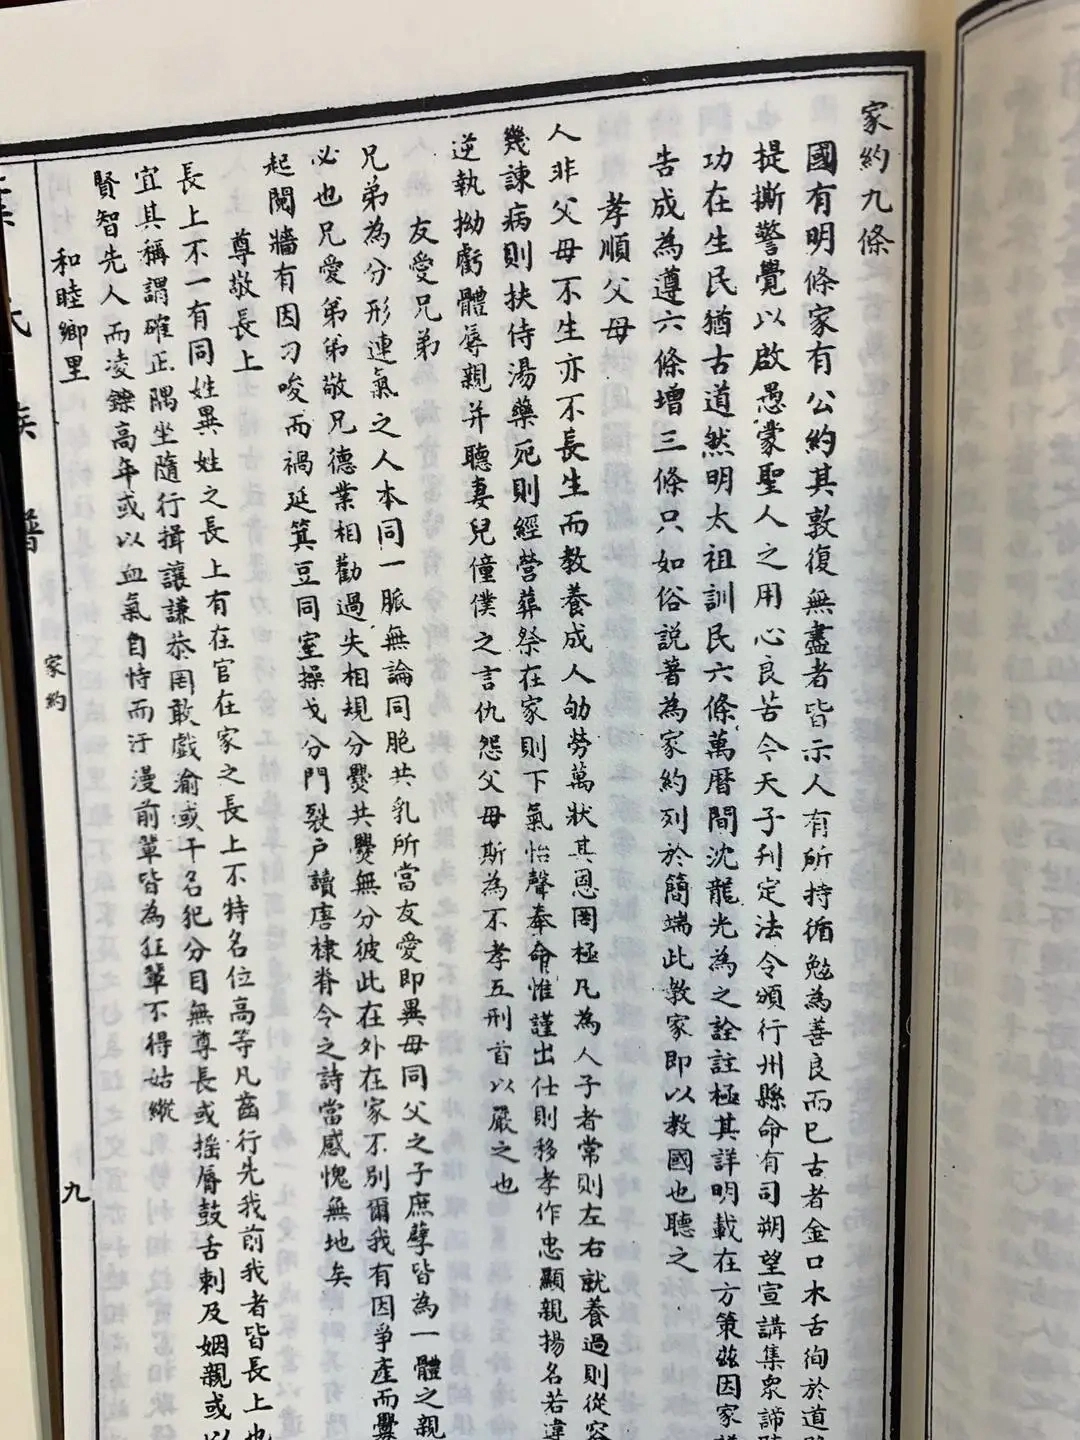 家約九條
國有明條家有公約其敦復無盡者皆示人有所持循勉為善良而已古者金口木舌徇於道
提撕警覺以啟愚蒙聖人之用心良苦今天子刊定法令頒行州縣命有司朔望宣講集衆諦
功在生民猶古道然明太祖訓民六條萬曆間沈龍光為之詮註極其詳明載在方策茲因家
告成為遵六條增三條只如俗説著為家約列於簡端此教家即以教國也聽之
孝順父母
人非父母不生亦不長生而教養成人劬勞萬狀其恩罔極凡為人子者常則左右就養過則從容
幾諫病則扶侍湯藥死則經營葬祭在家則下氣怡聲奉命惟謹出仕則移孝作忠顯親揚名若違
逆執拗虧體辱親并聽妻兒僮僕之言仇怨父母斯為不孝五刑首以嚴之也
友愛兄弟
兄弟為分形連氣之人本同一脈無論同胞共乳所當友愛即異母同父之子庶孽皆為一體之親
必也兄愛弟弟敬兄德業相勸過失相規分爨共爨無分彼此在外在家不別爾我有因爭產而釁
起鬩牆有因刁唆而禍延箕豆同室操戈分門裂户讀唐棣脊令之詩當感愧無地矣
尊敬長上
長上不一有同姓異姓之長上有在官在家之長上不特名位高等凡齒行先我前我者皆長上也
宜其稱謂確正隅坐隨行揖讓謙恭罔敢戲渝或干名犯分目無尊長或摇唇鼓舌刺及姻親或以
賢智先人而凌鑠高年或以血氣自恃而汙漫前輩皆為狂輩不得姑縱
和睦鄉里
氏族譜
家約
九